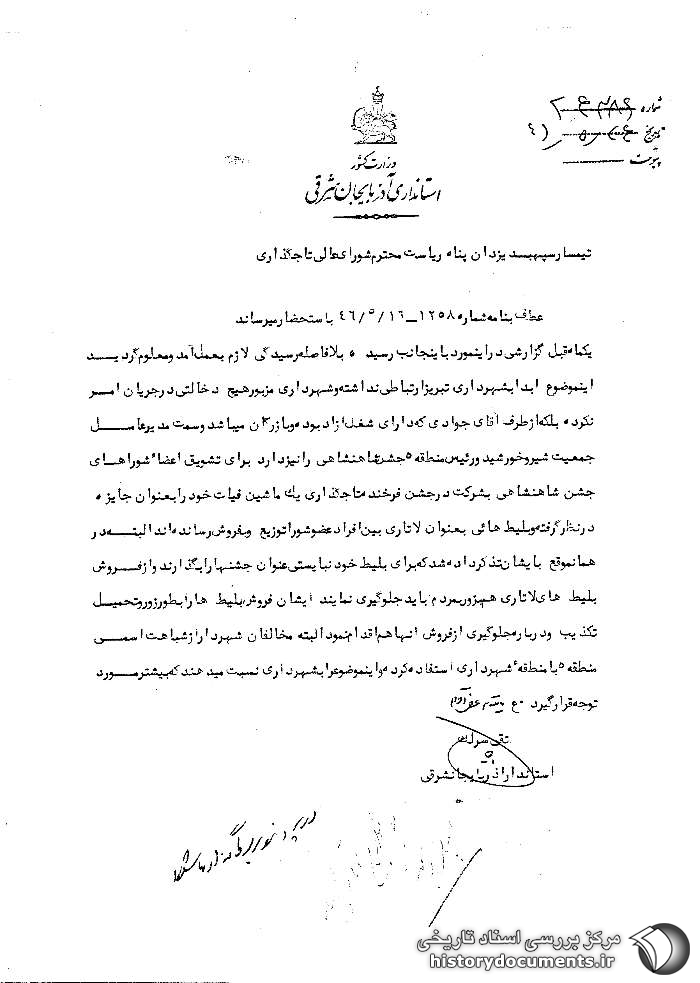 شماره
تاریخ
پیوست
وزارت کشور
استانداری آذربایجان شرقی
تیمسار سپهبد یزدان پناه ریاست محترم شورایعالی تاجگذاری
عطف بنامه شماره ۱۲۵۸ـ۱۶/۵/۴۶ باستحضار میرساند
یکماه قبل گزارشی در اینمورد باینجانب رسیده بلافاصله رسیدگی لازم بعمل آمد و معلوم گردیـــد
اینموضوع ابدا بشهرداری تبریز ارتباطی نداشته و شهرداری مزبور هیچ دخالتی در جریان امـــر
نکرده بلکه از طرف آقای جوادی که دارای شغل ازاد بوده و بازرگان میباشد و سمت مدیر عامـــل
جمعیت شیر و خورشید و رئیس منطقه ۵ جشن شاهنشاهی را نیز دارد برای تشویق اعضاء شورا هـــای
جشن شاهنشاهی بشرکت در جشن فرخنده تاجگذاری یك ماشین فیات خود را بعنوان جایزه
در نظر گرفته و بلیط هائی بعنوان لاتاری بین افراد عضو شورا توزیع و بفروش رسانده اند البتـــه در
همانموقع بایشان تذکر داده شد که برای بلیط خود نبایستی عنوان جشنها را بگذارند و از فـــروش
بلیط های لاتاری هم بزور بمردم باید جلوگیری نمایند ایشان فروش بلیط ها را بطور زور و تحمیل
تکذیب و درباره جلوگیری از فروش انها هم اقدام نمود البته مخالفان شهردار از شباهت اسمـــی
منطقه ۵ با منطقه ۵ شهرداری استفاده کرده و اینموضوع را بشهرداری نسبت میدهند که بیشتر مـــورد
توجه قرار گیرد ع
تقی سرلك
استاندار اذربایجانشرقی
در پرونده
مرکز بررسی اسناد تاریخی
historydocuments.ir